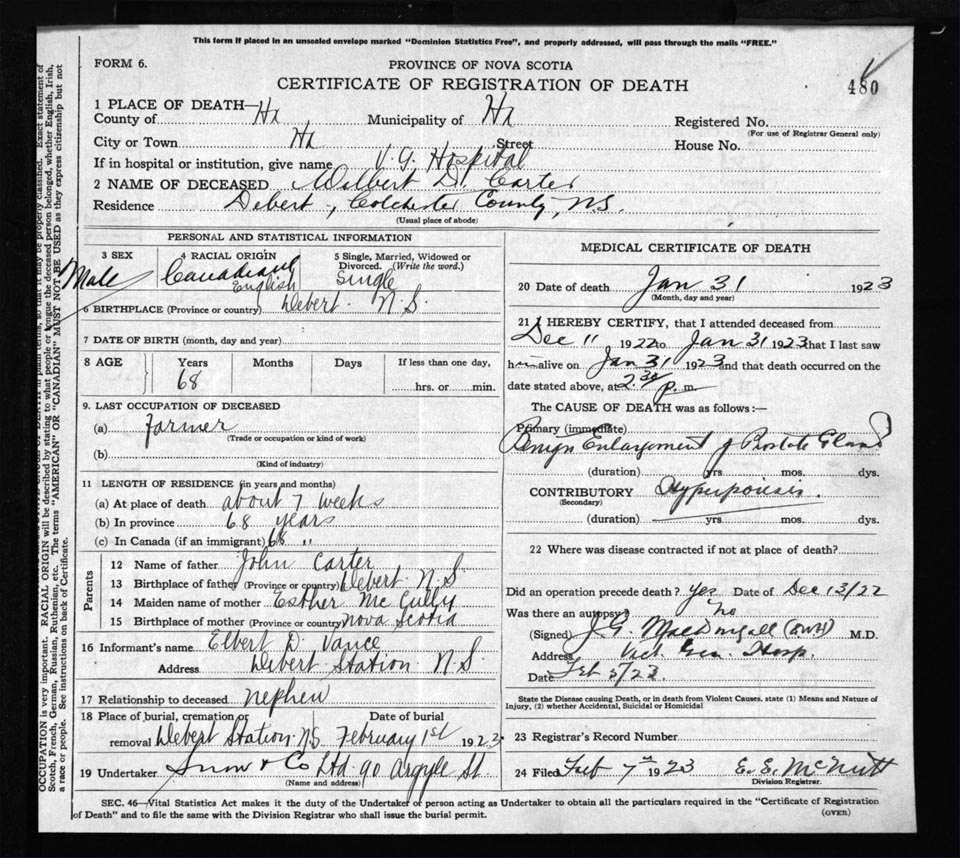 This form if placed in an unsealed envelope marked "Dominion Statistics Free", and properly addressed, will pass through the mails "FREE."
FORM 6.
PROVINCE OF NOVA SCOTIA
CERTIFICATE OF REGISTRATION OF DEATH
480
1 PLACE OF DEATH—
County of Hx Municipality of Hx Registered No.
(For use of Registrar General only)
City or Town Hx Street House No.
If in hospital or institution, give name V. G. Hospital
2 NAME OF DECEASED Wilbert D. Carter
Residence Debert, Colchester County, N.S.
(Usual place of abode)
PERSONAL AND STATISTICAL INFORMATION
3 SEX 4 RACIAL ORIGIN 5 Single, Married, Widowed or Divorced. (Write the word.)
Male Canadian English Single
6 BIRTHPLACE (Province or country) Debert N.S.
7 DATE OF BIRTH (month, day and year)
8 AGE Years Months Days If less than one day,
68 hrs. or min.
9. LAST OCCUPATION OF DECEASED
(a) Farmer
(Trade or occupation or kind of work)
(b)
(Kind of industry)
11 LENGTH OF RESIDENCE (in years and months)
(a) At place of death about 7 weeks
(b) In province 68 years
(c) In Canada (if an immigrant) 68 "
Parents
12 Name of father John Carter
13 Birthplace of father (Province or country) Debert N.S.
14 Maiden name of mother Esther McCully
15 Birthplace of mother (Province or country) Nova Scotia
16 Informant's name Elbert D. Vance
Address Debert Station N.S.
17 Relationship to deceased nephew
18 Place of burial, cremation or Date of burial
removal Debert Station N.S. February 1st 1923
19 Undertaker Snow & Co Ltd 90 Argyle St.
(Name and address)
MEDICAL CERTIFICATE OF DEATH
20 Date of death Jan 31 1923
(Month, day and year)
21 I HEREBY CERTIFY, that I attended deceased from
Dec 11 1922 to Jan 31 1923 that I last saw
him alive on Jan 31 1923 and that death occurred on the
date stated above, at 2.30 p. m.
The CAUSE OF DEATH was as follows:—
Primary (immediate)
Benign Enlargement of Prostate Gland
(duration) yrs. mos. dys.
CONTRIBUTORY
(Secondary)
(duration) yrs. mos. dys.
22 Where was disease contracted if not at place of death?
Did an operation precede death? Yes Date of Dec 13/22
Was there an autopsy? no
(Signed) J. G. MacDougall (EWH) M.D.
Address Vict. Gen. Hosp.
Date Feb 5/23.
State the Disease causing Death, or in death from Violent Causes, state (1) Means and Nature of
Injury, (2) whether Accidental, Suicidal or Homicidal
23 Registrar's Record Number
24 Filed Feb 7th 1923 E. E. McNutt
Division Registrar.
SEC. 46—Vital Statistics Act makes it the duty of the Undertaker or person acting as Undertaker to obtain all the particulars required in the "Certificate of Registration
of Death" and to file the same with the Division Registrar who shall issue the burial permit.
(OVER)
OCCUPATION is very important. RACIAL ORIGIN will be described by stating to what people or tongue the deceased person belonged, whether English, Irish,
Scotch, French, German, Russian, Ruthenian, etc. The terms "AMERICAN" OR "CANADIAN" MUST NOT BE USED as they express citizenship but not
a race or people. See instructions on back of Certificate.